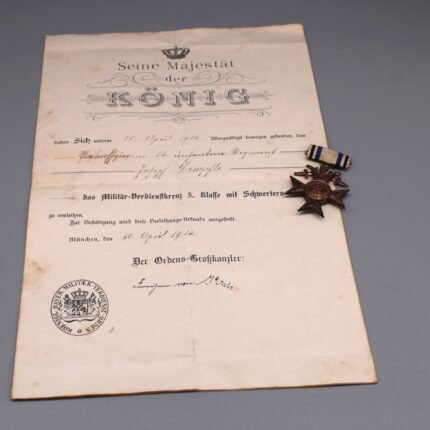 Seine Majestät
der
KÖNIG
haben Sich unterm 20. April 1916 Allergnädigst bewogen gefunden, dem
Infanterie Regiment
Josef
das Militär-Verdienstkreuz 3. Klasse mit Schwertern
zu verleihen.
Zur Bestätigung wird diese Verleihungs-Urkunde ausgestellt.
München, den 20. April 1916.
Der Ordens-Großkanzler:
Freiherr von
KOENIGL. BAYER. MILITÆR VERDIENST ORDEN